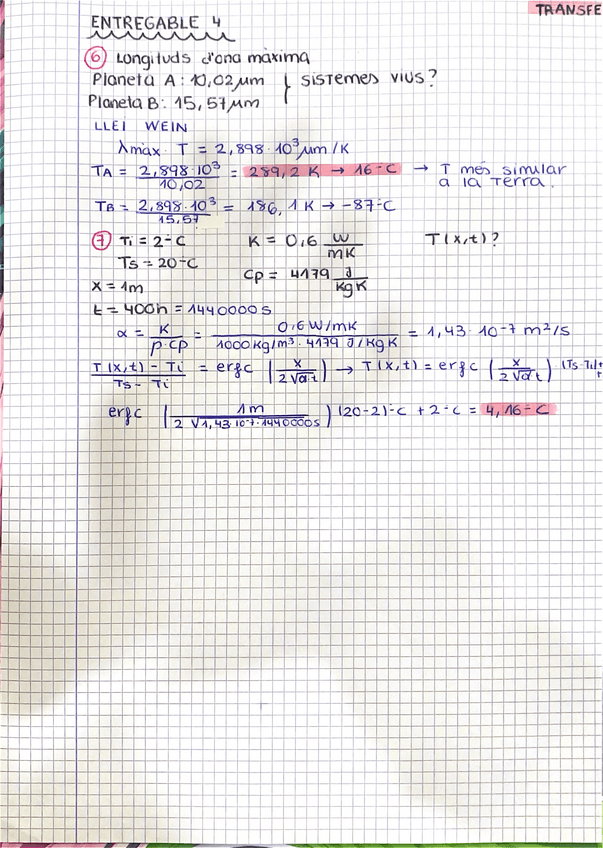 TRANSFE
ENTREGABLE 4
⑥ Longituds d'ona màxima
Planeta A: 10,02 μm } sistemes vius?
Planeta B: 15,57 μm
LLEI WEIN
λmàx · T = 2,898·10³ μm/K
TA = 2,898·10³ / 10,02 = 289,2 K → 16ºC → T més similar a la Terra.
TB = 2,898·10³ / 15,57 = 186,1 K → -87ºC
⑦ Ti = 2ºC K = 0,6 W/mK T(x,t)?
Ts = 20ºC Cp = 4179 J/kgK
x = 1m
t = 400h = 1440000 s
α = K / ρ·cp = 0,6 W/mK / 1000 Kg/m³ · 4179 J/KgK = 1,43·10⁻⁷ m²/s
T(x,t) - Ti / Ts - Ti = erfc (x / 2√α·t) → T(x,t) = erfc (x / 2√α·t) (Ts-Ti)+
erfc (1m / 2√1,43·10⁻⁷·1440000s) (20-2)ºC + 2ºC = 4,16ºC